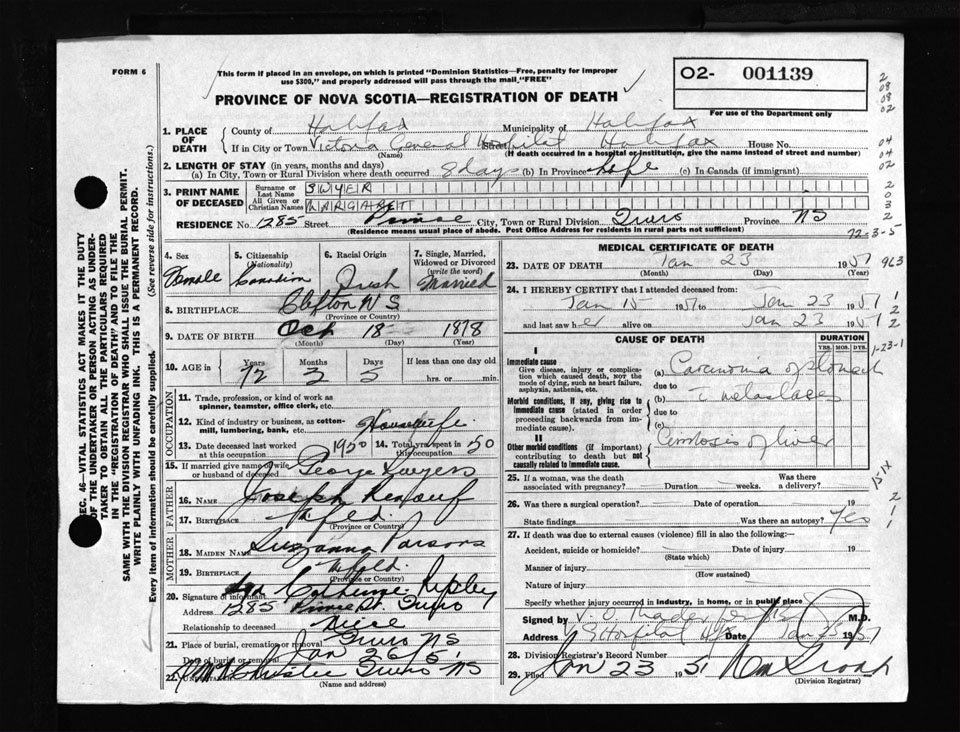 FORM 6
This form if placed in an envelope, on which is printed "Dominion Statistics—Free, penalty for improper
use $300," and properly addressed will pass through the mail, "FREE"
PROVINCE OF NOVA SCOTIA—REGISTRATION OF DEATH
O2- 001139
For use of the Department only
1. PLACE OF DEATH
County of Halifax Municipality of Halifax
If in City or Town Victoria General Hospital Street Halifax House No.
(Name) (If death occurred in a hospital or institution, give the name instead of street and number)
2. LENGTH OF STAY (in years, months and days)
(a) In City, Town or Rural Division where death occurred 8 days (b) In Province Life (c) In Canada (if immigrant)
3. PRINT NAME OF DECEASED
Surname or Last Name SWYER
All Given or Christian Names MARGARET
RESIDENCE No. 1285 Street Prince City, Town or Rural Division Truro Province NS
(Residence means usual place of abode. Post Office Address for residents in rural parts not sufficient)
72-3-5
4. Sex Female
5. Citizenship (Nationality) Canadian
6. Racial Origin Irish
7. Single, Married, Widowed or Divorced (write the word) Married
8. BIRTHPLACE Clifton N S
(Province or Country)
9. DATE OF BIRTH Oct 18 1878
(Month) (Day) (Year)
10. AGE in Years 72 Months 3 Days 5 If less than one day old
hrs. or min.
OCCUPATION
11. Trade, profession, or kind of work as
spinner, teamster, office clerk, etc.
12. Kind of industry or business, as cotton-
mill, lumbering, bank, etc. Housewife
13. Date deceased last worked at this occupation 1950 14. Total yrs. spent in this occupation 50
15. If married give name of wife or husband of deceased George Swyers
FATHER
16. Name Joseph Renouf
17. Birthplace Nfld.
(Province or Country)
MOTHER
18. MAIDEN NAME Suzanna Parsons
19. BIRTHPLACE Nfld.
(Province or Country)
20. Signature of informant Catherine Ripley
Address 1285 Prince St. Truro
Relationship to deceased Niece
21. Place of burial, cremation or removal Truro NS
Date of burial or removal Jan 26/51
22. Christie Truro NS
(Name and address)
MEDICAL CERTIFICATE OF DEATH
23. DATE OF DEATH Jan 23 1951
(Month) (Day) (Year)
963
24. I HEREBY CERTIFY that I attended deceased from:
Jan 15 1951 to Jan 23 1951
and last saw her alive on Jan 23 1951
CAUSE OF DEATH
DURATION
YRS. MOS. DYS.
1-23-1
I
Immediate cause
Give disease, injury or complica-
tion which caused death, not the
mode of dying, such as heart failure,
asphyxia, asthenia, etc.
(a) Carcinoma of stomach
due to
Morbid conditions, if any, giving rise to
immediate cause (stated in order
proceeding backwards from im-
mediate cause).
(b) metastases
due to
(c)
II
Other morbid conditions (if important)
contributing to death but not
causally related to immediate cause.
Cirrhosis of liver
151X
25. If a woman, was the death associated with pregnancy? Duration weeks. Was there a delivery?
26. Was there a surgical operation? Date of operation 19
State findings Was there an autopsy? Yes
27. If death was due to external causes (violence) fill in also the following:
Accident, suicide or homicide? Date of injury 19
(State which)
Manner of injury
(How sustained)
Nature of injury
Specify whether injury occurred in industry, in home, or in public place
Signed by M.D.
Address Hospital Date Jan 23 1951
28. Division Registrar's Record Number
29. Filed Jan 23 1951
(Division Registrar)
SEC. 46—VITAL STATISTICS ACT MAKES IT THE DUTY
OF THE UNDERTAKER OR PERSON ACTING AS UNDER-
TAKER TO OBTAIN ALL THE PARTICULARS REQUIRED
IN THE "REGISTRATION OF DEATH" AND TO FILE THE
SAME WITH THE DIVISION REGISTRAR WHO SHALL ISSUE THE BURIAL PERMIT.
WRITE PLAINLY WITH UNFADING INK. THIS IS A PERMANENT RECORD.
Every item of information should be carefully supplied. (See reverse side for instructions.)